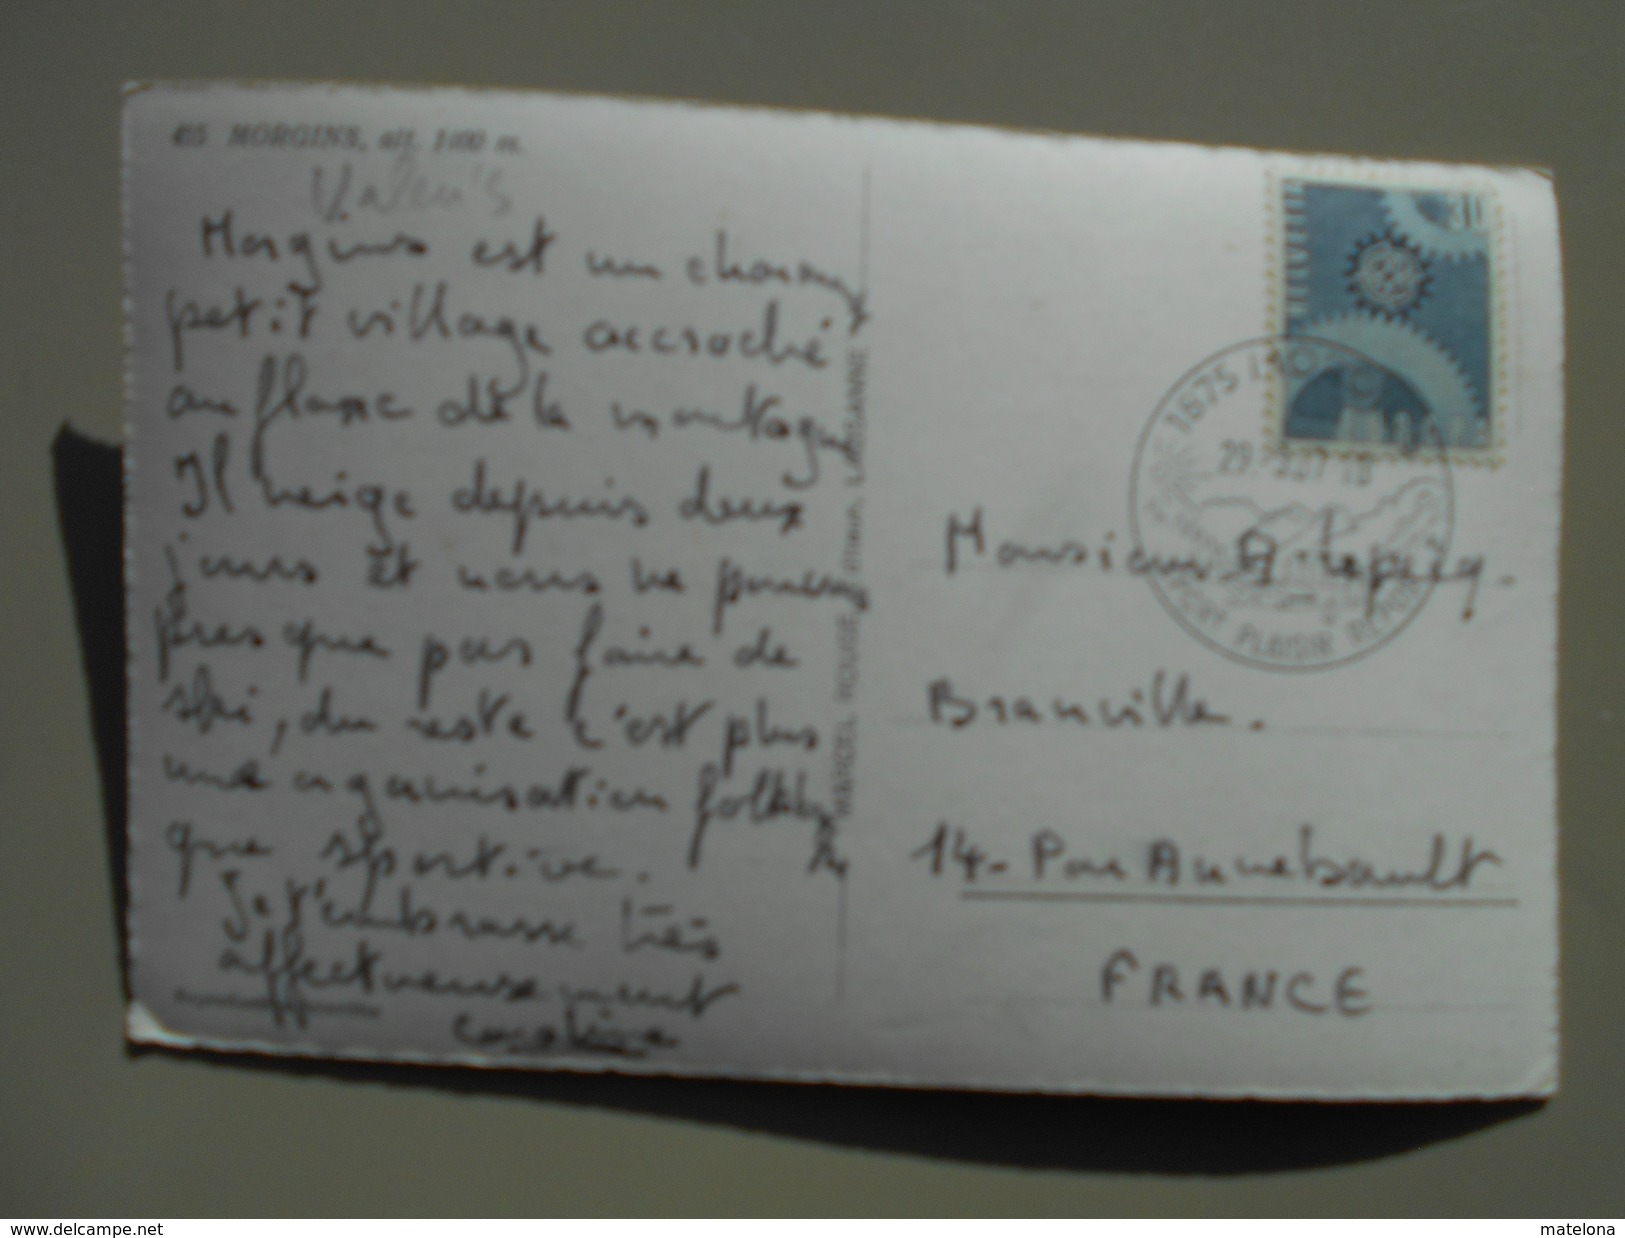 455 MORGINS, alt. 1400 m.
Valais
Morgins est un charmant
petit village accroché
au flanc de la montagne
Il neige depuis deux
jours et nous ne pouvons
presque pas faire de
ski, du reste c'est plus
une organisation folklori
que sportive.
Je t'embrasse très
affectueusement
HELVETIA
30
1875
29.
SPORT PLAISIR REPOS
MARCEL ROUGE LAUSANNE
Monsieur A. Lepicq.
Branville.
14 - Par Annebault
FRANCE
www.delcampe.net
matelona